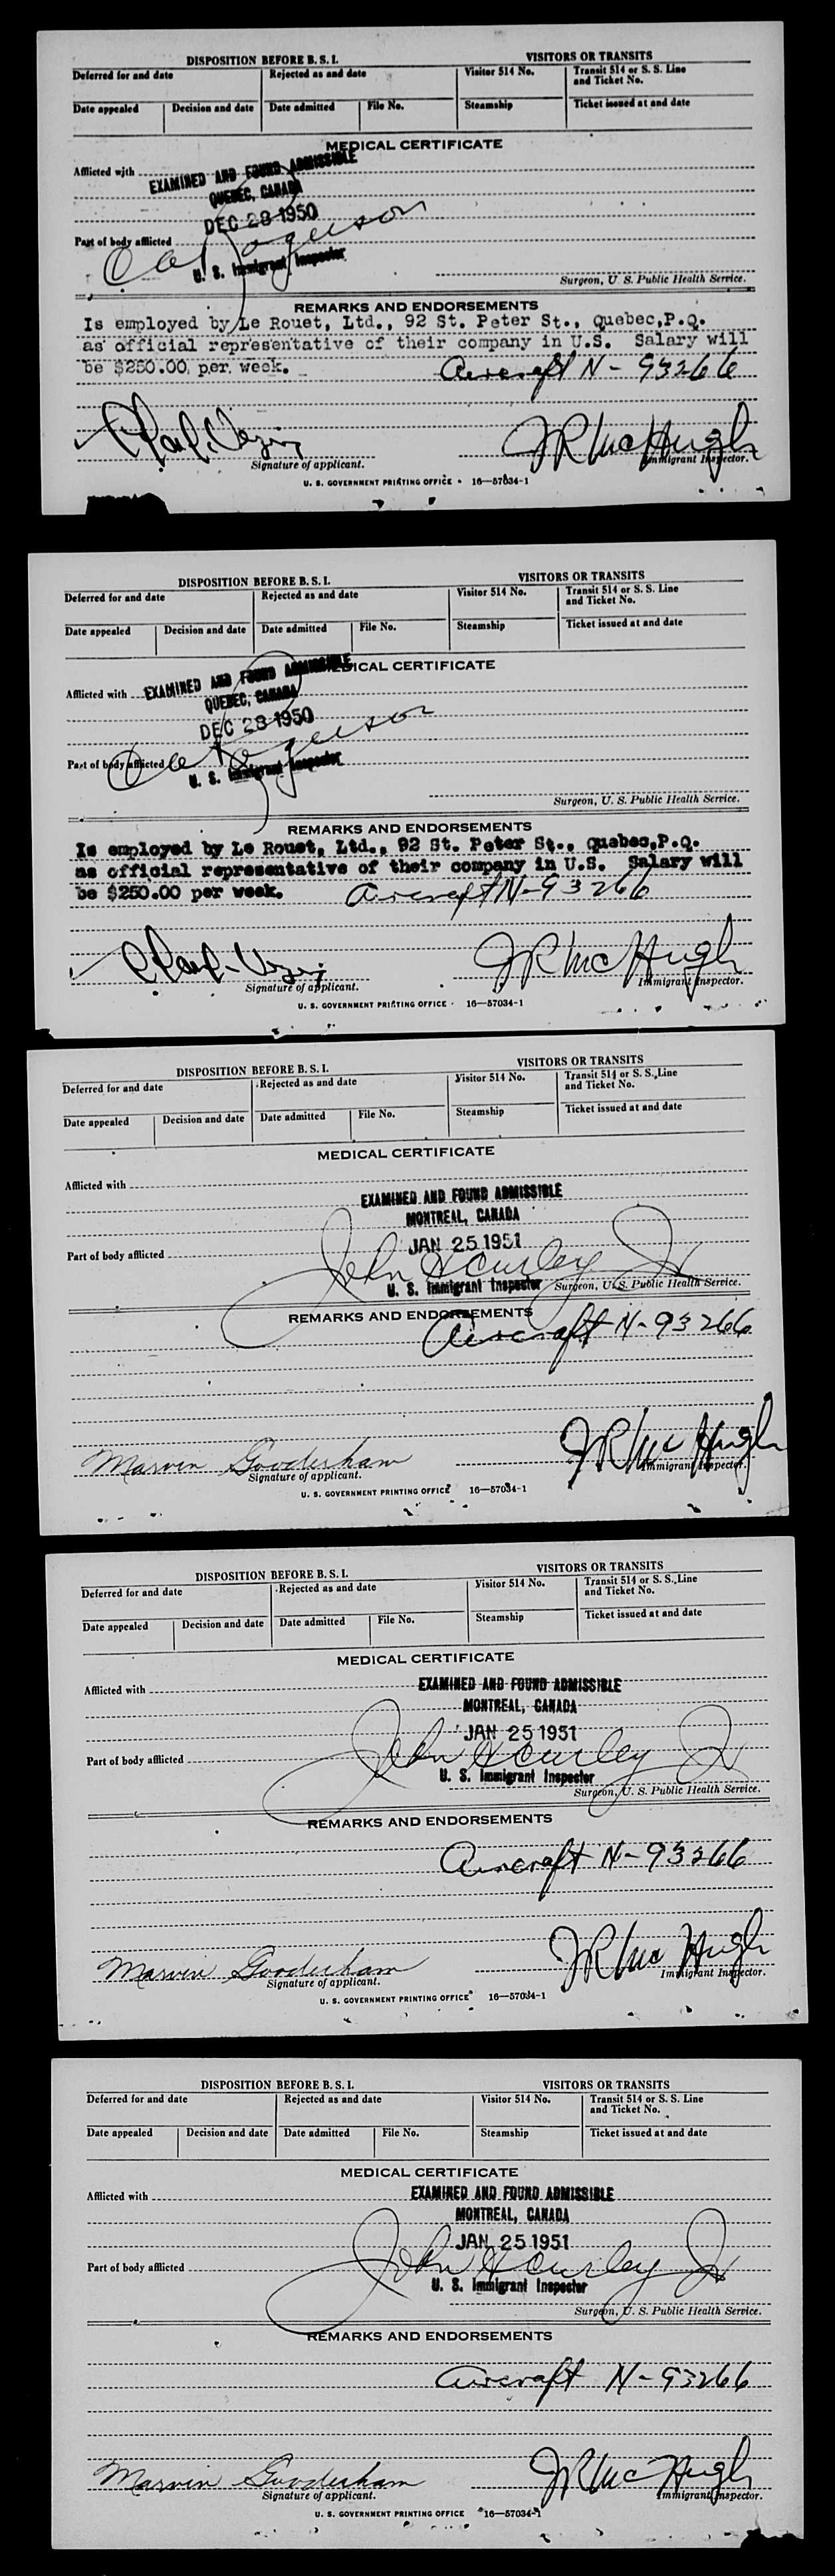 DISPOSITION BEFORE B. S. I. VISITORS OR TRANSITS
Deferred for and date Rejected as and date Visitor 514 No. Transit 514 or S. S. Line and Ticket No.
Date appealed Decision and date Date admitted File No. Steamship Ticket issued at and date
MEDICAL CERTIFICATE
Afflicted with
EXAMINED AND FOUND ADMISSIBLE
QUEBEC, CANADA
DEC 28 1950
Part of body afflicted
U. S. Immigrant Inspector
Surgeon, U. S. Public Health Service.
REMARKS AND ENDORSEMENTS
Is employed by Le Rouet, Ltd., 92 St. Peter St., Quebec,P.Q.
as official representative of their company in U.S. Salary will
be $250.00 per week. Aircraft N-93266
JR McHugh
Signature of applicant. Immigrant Inspector.
U. S. GOVERNMENT PRINTING OFFICE 16—57034-1
DISPOSITION BEFORE B. S. I. VISITORS OR TRANSITS
Deferred for and date Rejected as and date Visitor 514 No. Transit 514 or S. S. Line and Ticket No.
Date appealed Decision and date Date admitted File No. Steamship Ticket issued at and date
MEDICAL CERTIFICATE
Afflicted with EXAMINED AND FOUND ADMISSIBLE
QUEBEC, CANADA
DEC 28 1950
Part of body afflicted
U. S. Immigrant Inspector
Surgeon, U. S. Public Health Service.
REMARKS AND ENDORSEMENTS
Is employed by Le Rouet, Ltd., 92 St. Peter St., Quebec,P.Q.
as official representative of their company in U.S. Salary will
be $250.00 per week. Aircraft N-93266
JR McHugh
Signature of applicant. Immigrant Inspector.
U. S. GOVERNMENT PRINTING OFFICE 16—57034-1
DISPOSITION BEFORE B. S. I. VISITORS OR TRANSITS
Deferred for and date Rejected as and date Visitor 514 No. Transit 514 or S. S. Line and Ticket No.
Date appealed Decision and date Date admitted File No. Steamship Ticket issued at and date
MEDICAL CERTIFICATE
Afflicted with
EXAMINED AND FOUND ADMISSIBLE
MONTREAL, CANADA
JAN 25 1951
Part of body afflicted John H Curley Jr
U. S. Immigrant Inspector Surgeon, U. S. Public Health Service.
REMARKS AND ENDORSEMENTS
Aircraft N-93266
Marvin Gooderham JR McHugh
Signature of applicant. Immigrant Inspector.
U. S. GOVERNMENT PRINTING OFFICE 16—57034-1
DISPOSITION BEFORE B. S. I. VISITORS OR TRANSITS
Deferred for and date Rejected as and date Visitor 514 No. Transit 514 or S. S. Line and Ticket No.
Date appealed Decision and date Date admitted File No. Steamship Ticket issued at and date
MEDICAL CERTIFICATE
Afflicted with
EXAMINED AND FOUND ADMISSIBLE
MONTREAL, CANADA
JAN 25 1951
Part of body afflicted John H Curley Jr
U. S. Immigrant Inspector
Surgeon, U. S. Public Health Service.
REMARKS AND ENDORSEMENTS
Aircraft N-93266
Marvin Gooderham JR McHugh
Signature of applicant. Immigrant Inspector.
U. S. GOVERNMENT PRINTING OFFICE 16—57034-1
DISPOSITION BEFORE B. S. I. VISITORS OR TRANSITS
Deferred for and date Rejected as and date Visitor 514 No. Transit 514 or S. S. Line and Ticket No.
Date appealed Decision and date Date admitted File No. Steamship Ticket issued at and date
MEDICAL CERTIFICATE
Afflicted with EXAMINED AND FOUND ADMISSIBLE
MONTREAL, CANADA
JAN 25 1951
Part of body afflicted John H Curley Jr
U. S. Immigrant Inspector
Surgeon, U. S. Public Health Service.
REMARKS AND ENDORSEMENTS
Aircraft N-93266
Marvin Gooderham JR McHugh
Signature of applicant. Immigrant Inspector.
U. S. GOVERNMENT PRINTING OFFICE 16—57034-1